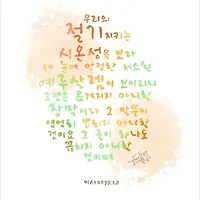 우리의
절기지키는
시온성을 보라
네 눈에 안정한 처소된
예루살렘이 보이리니
그것은 옮겨지지 아니할
장막이라 그 말뚝이
영영히 뽑히지 아니할
것이요 그 줄이 하나도
끊치지 아니할
것이며
이사야33:20